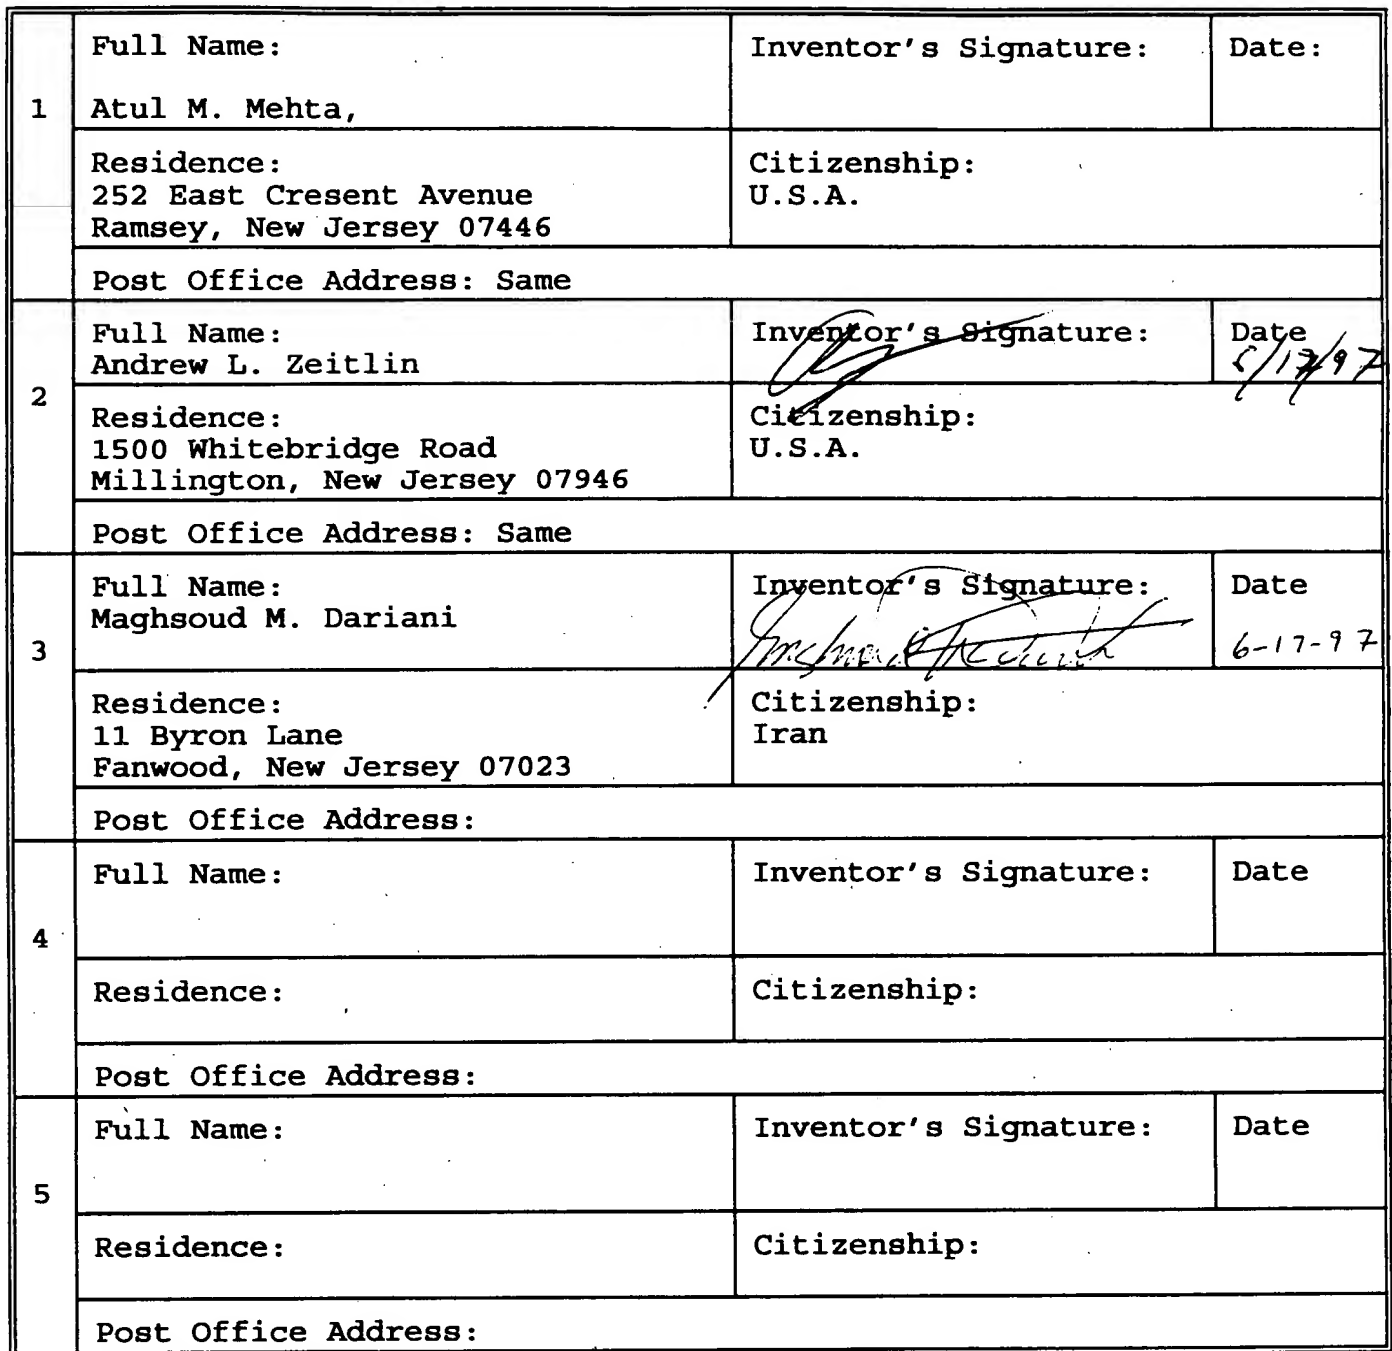 1
Full Name:
Atul M. Mehta,
Inventor's Signature:
Date:
Residence:
252 East Cresent Avenue
Ramsey, New Jersey 07446
Citizenship:
U.S.A.
Post Office Address: Same
2
Full Name:
Andrew L. Zeitlin
Inventor's Signature:
Date
Residence:
1500 Whitebridge Road
Millington, New Jersey 07946
Citizenship:
U.S.A.
Post Office Address: Same
3
Full Name:
Maghsoud M. Dariani
Inventor's Signature:
Date
6-17-97
Residence:
11 Byron Lane
Fanwood, New Jersey 07023
Citizenship:
Iran
Post Office Address:
4
Full Name:
Inventor's Signature:
Date
Residence:
Citizenship:
Post Office Address:
5
Full Name:
Inventor's Signature:
Date
Residence:
Citizenship:
Post Office Address: